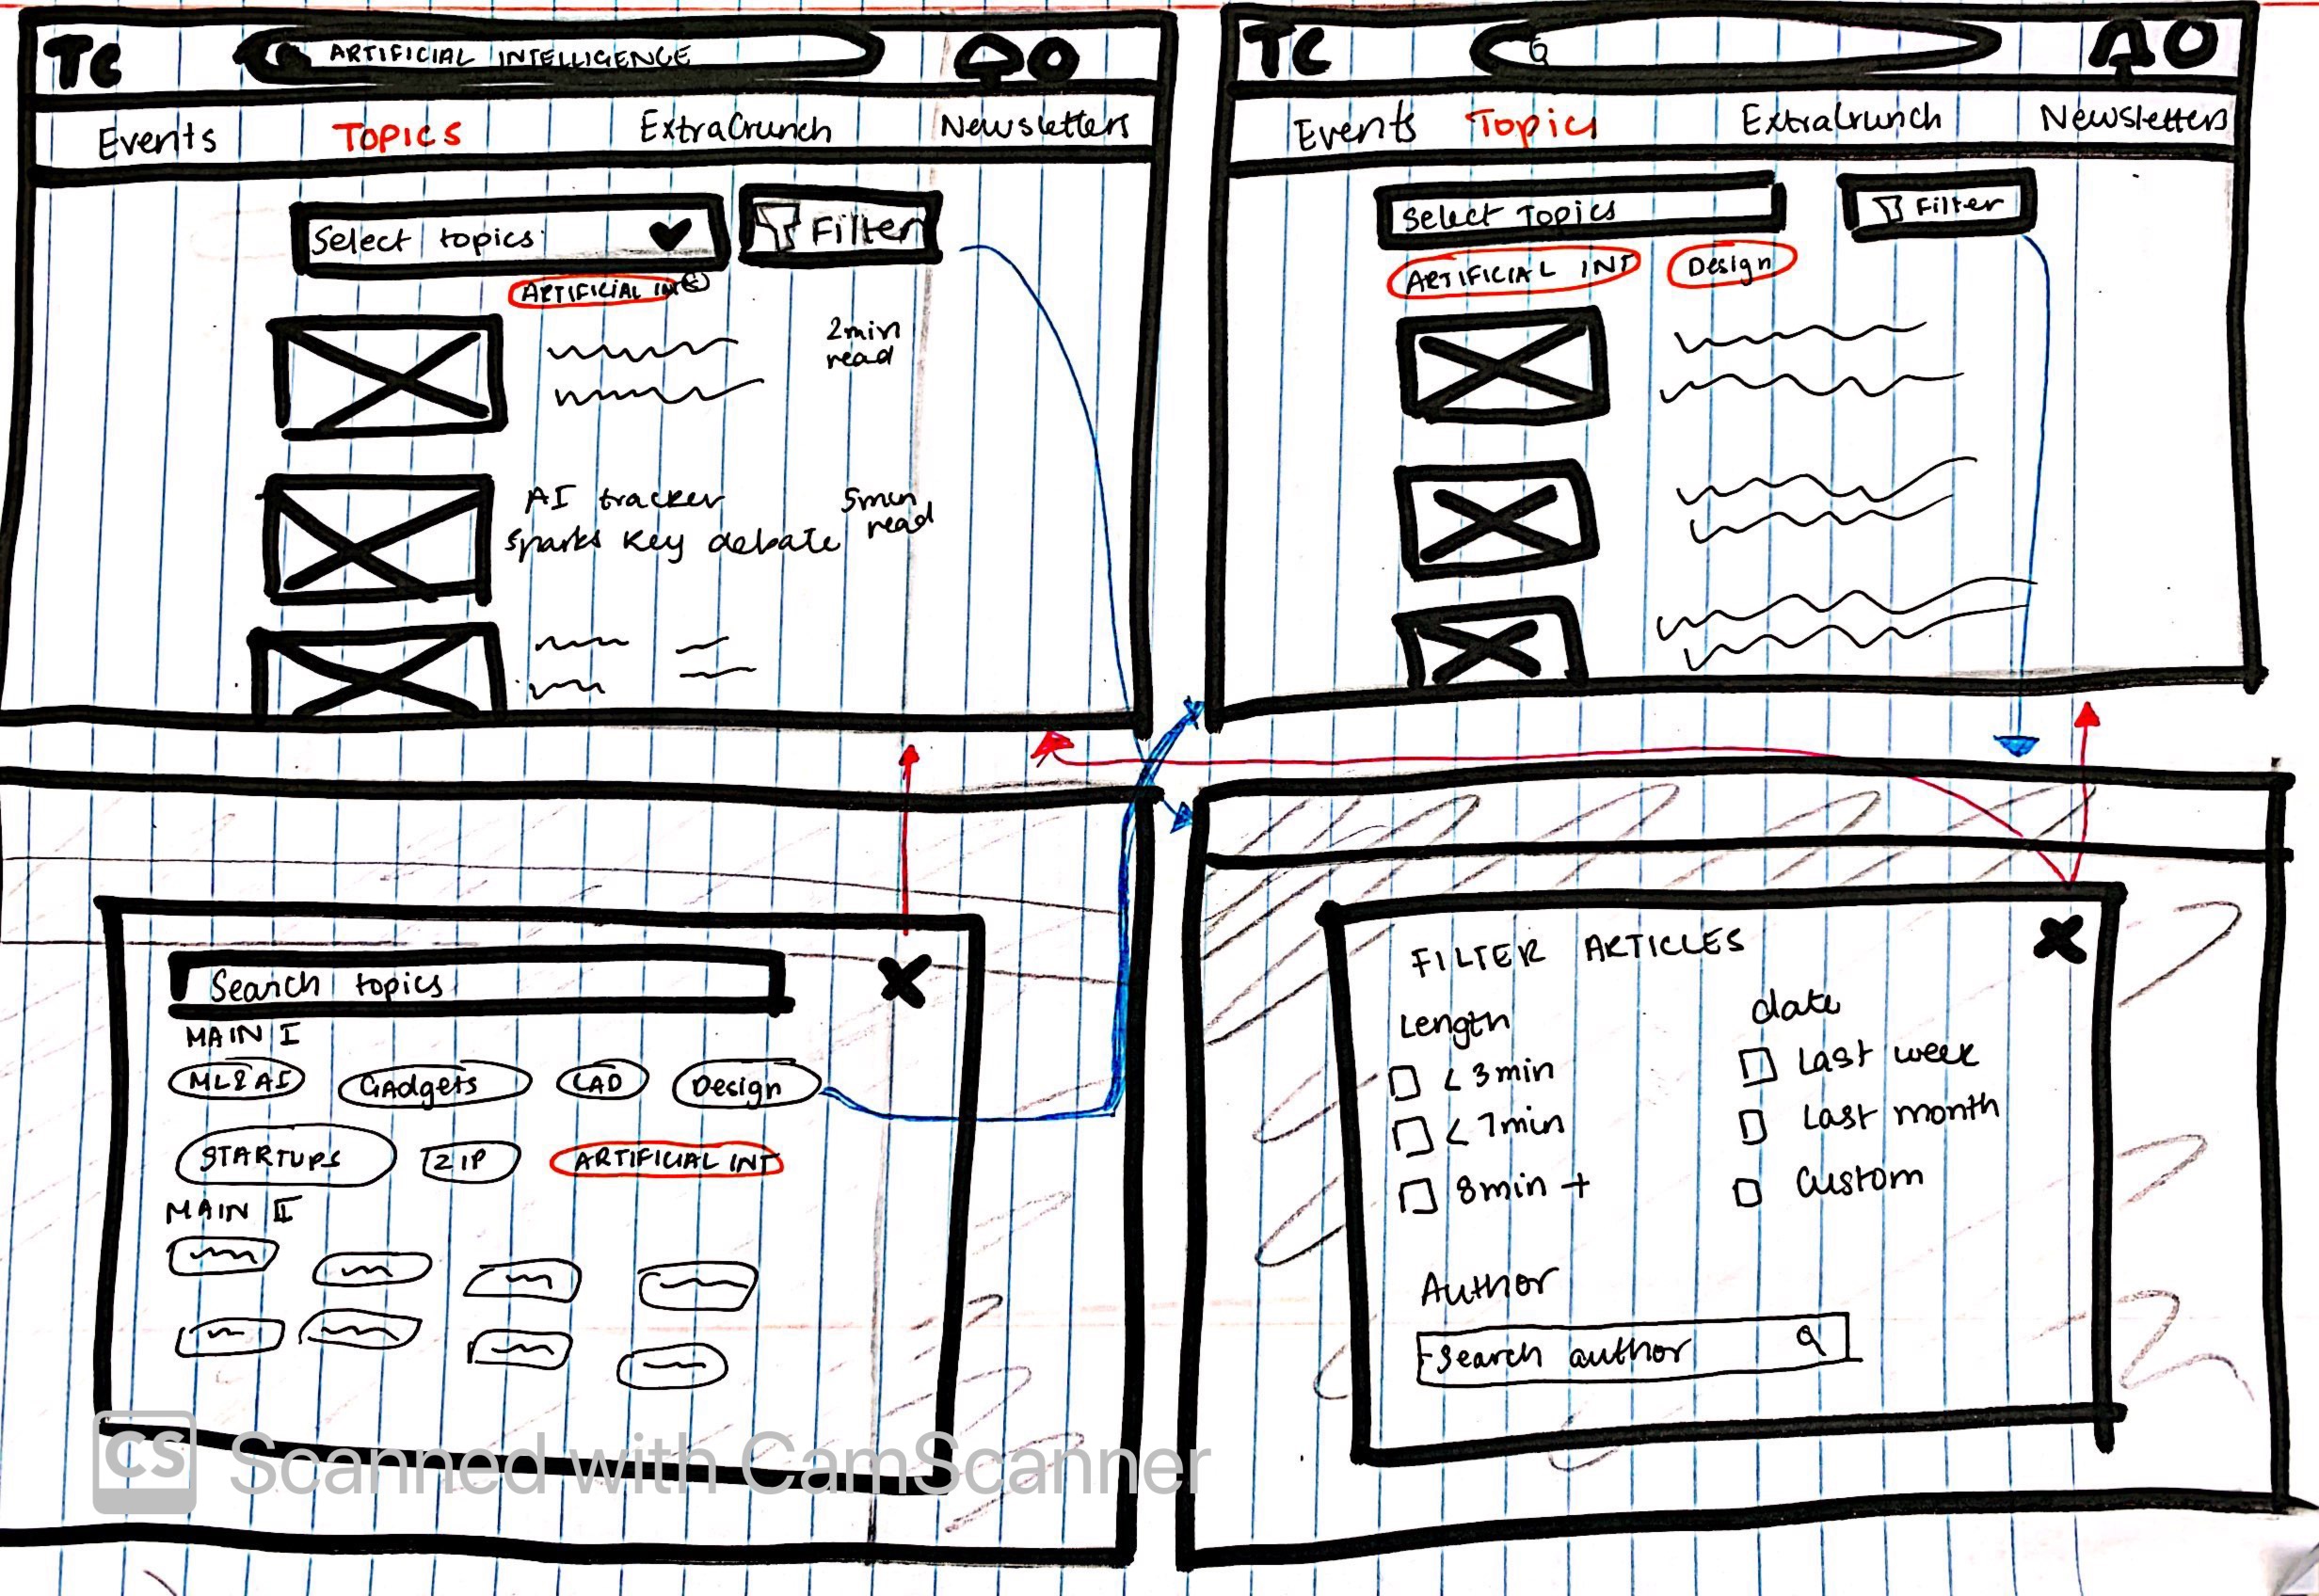 TC
ARTIFICIAL INTELLIGENCE
Events TOPICS ExtraCrunch Newsletters
Select topics
Filter
ARTIFICIAL INT
2min
read
AI tracker
sparks key debate
5min
read
TC
Events Topics ExtraCrunch Newsletters
Select Topics
Filter
ARTIFICIAL INT Design
Search topics
X
MAIN I
ML&AI GAdgets CAD Design
STARTUPS ZIP ARTIFICIAL INT
MAIN II
FILTER ARTICLES
X
Length
< 3min
< 7min
8min +
date
Last week
Last month
Custom
Author
Search author
CS Scanned with CamScanner